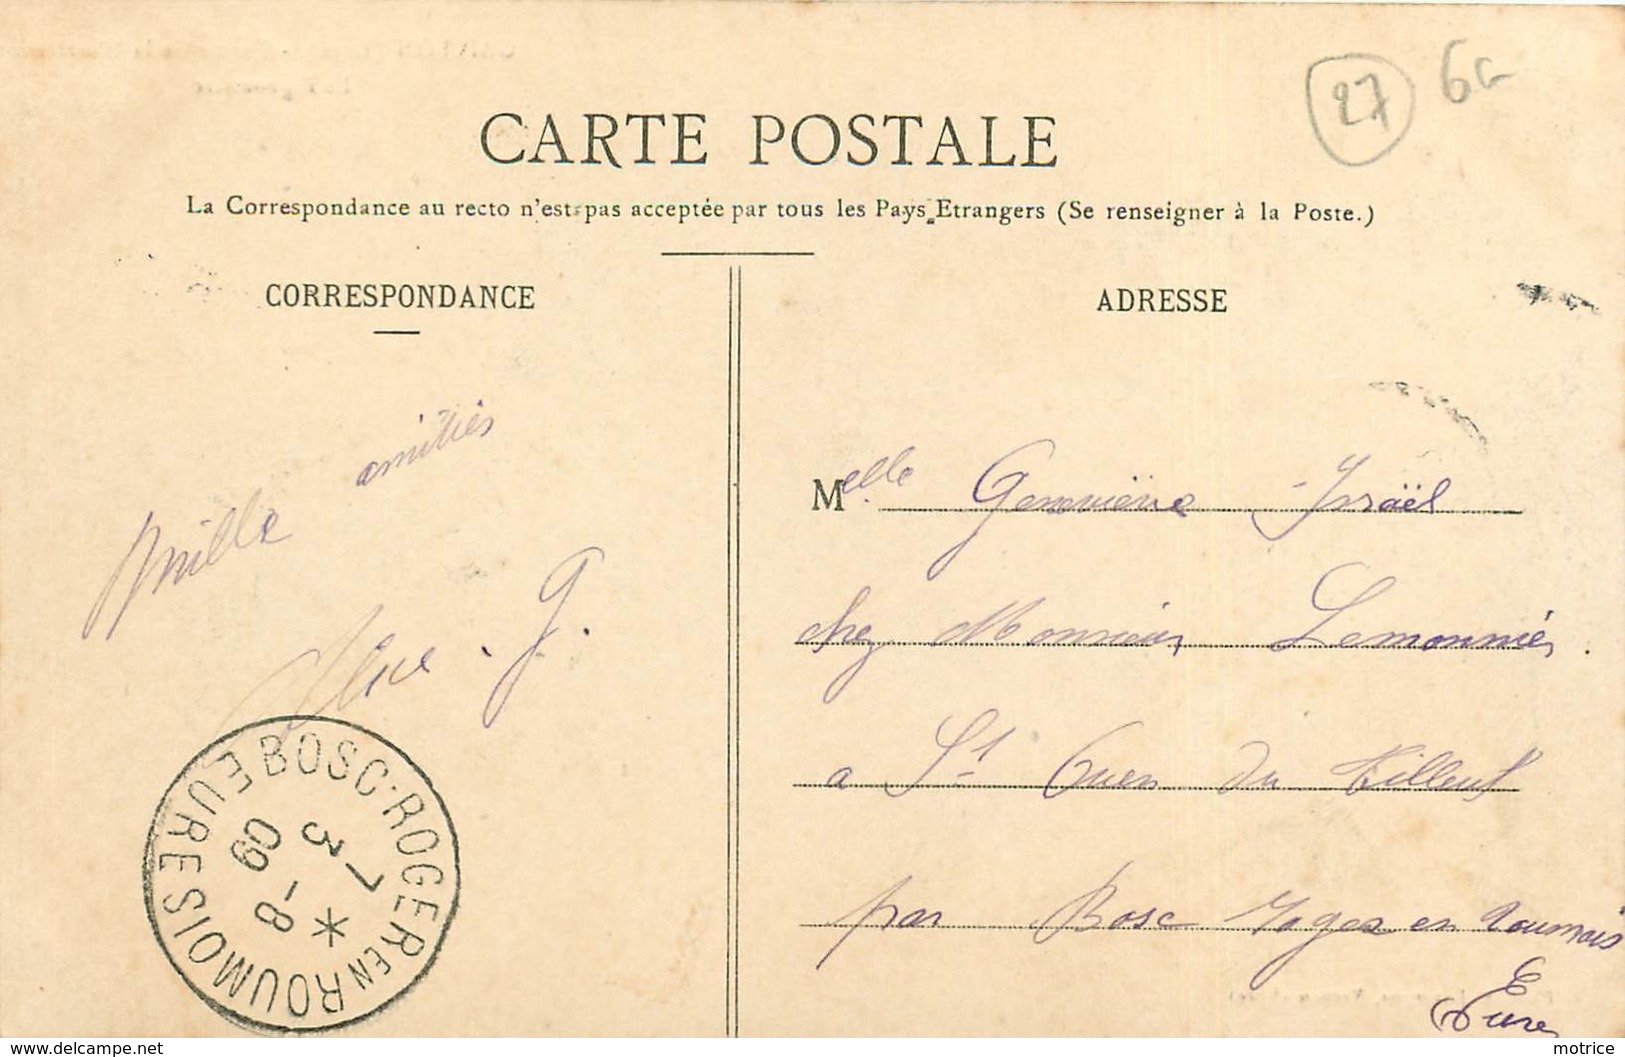 27 6c
CARTE POSTALE
La Correspondance au recto n'est pas acceptée par tous les Pays Etrangers (Se renseigner à la Poste.)
CORRESPONDANCE
Mille amitiés
G.
BOSC-ROGER EN ROUMOIS
EURE
7-8
3 * 09
ADRESSE
Melle Geneviève Israël
chez Monsieur Lemonnier.
a St Ouen du Tilleul
par Bosc Roger en Roumois
Eure
www.delcampe.net
motrice